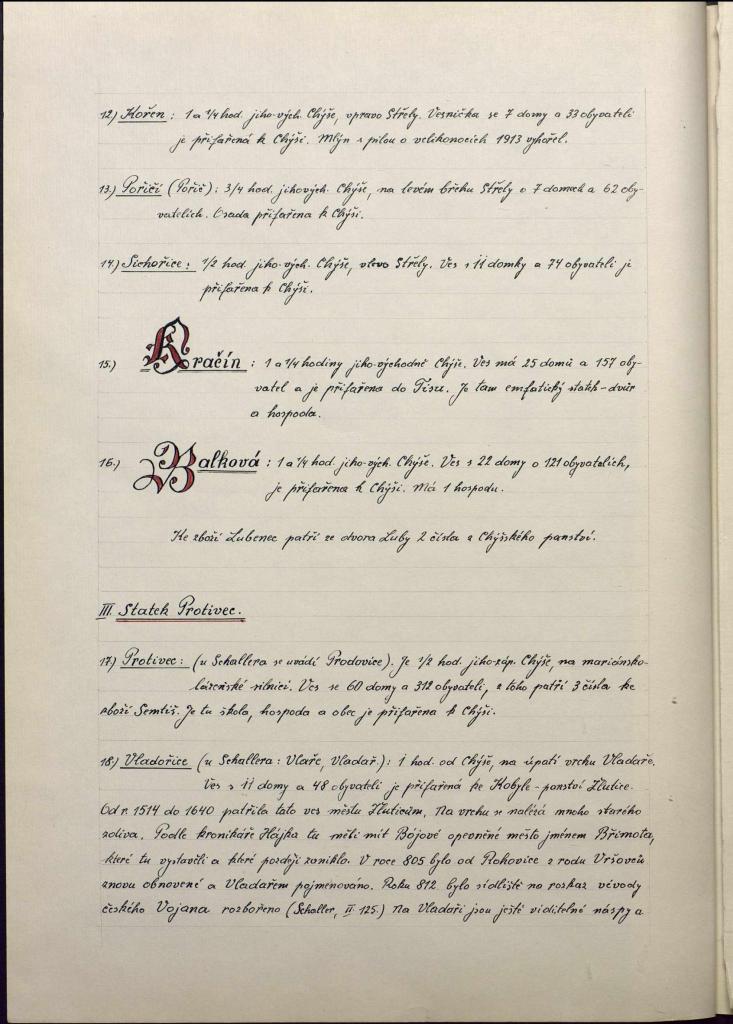 12) Kořen : 1 a 1/4 hod. jiho-vých. Chýše, vpravo Střely. Vesnička se 7 domy a 33 obyvateli
je přifařená k Chýši. Mlýn s pilou o velikonocích 1913 vyhořel.
13.) Poříčí (Pořič) : 3/4 hod. jihových. Chýše, na levém břehu Střely o 7 domech a 62 oby-
vatelích. Osada přifařena k Chýši.
14.) Sichořice : 1/2 hod. jiho-vých. Chýše, vlevo Střely. Ves s 11 domky a 74 obyvateli je
přifařena k Chýši.
15.) Kračín : 1 a 1/4 hodiny jiho-východně Chýše. Ves má 25 domů a 157 oby-
vatel a je přifařena do Tisu. Je tam emfatický statek - dvůr
a hospoda.
16.) Balková : 1 a 1/4 hod. jiho-vých. Chýše. Ves s 22 domy o 121 obyvatelích,
je přifařena k Chýši. Má 1 hospodu.
Ke zboží Lubenec patří ze dvora Luby 2 čísla z Chýšského panství.
III. Statek Protivec.
17.) Protivec : (u Schallera se uvádí Prodovice). Je 1/2 hod. jiho-záp. Chýše, na mariánsko-
lázeňské silnici. Ves se 60 domy a 312 obyvateli, z toho patří 3 čísla ke
zboží Semtiš. Je tu škola, hospoda a obec je přifařena k Chýši.
18.) Vladořice (u Schallera : Vlaře, Vladař.) : 1 hod. od Chýše, na úpatí vrchu Vladaře.
Ves s 11 domy a 48 obyvateli je přifařená ke Kobyle - panství Žlutice.
Od r. 1514 do 1640 patřila tato ves městu Žluticům. Na vrchu se nalézá mnoho starého
zdiva. Podle kronikáře Hájka tu měli mít Bójové opevněné město jménem Břimota,
které tu vystavěli a které později zaniklo. V roce 805 bylo od Rohovice z rodu Vršovců
znovu obnovené a Vladařem pojmenováno. Roku 812 bylo sídliště na rozkaz vévody
českého Vojana rozbořeno (Schaller, II 125.) Na Vladaři jsou ještě viditelné náspy a